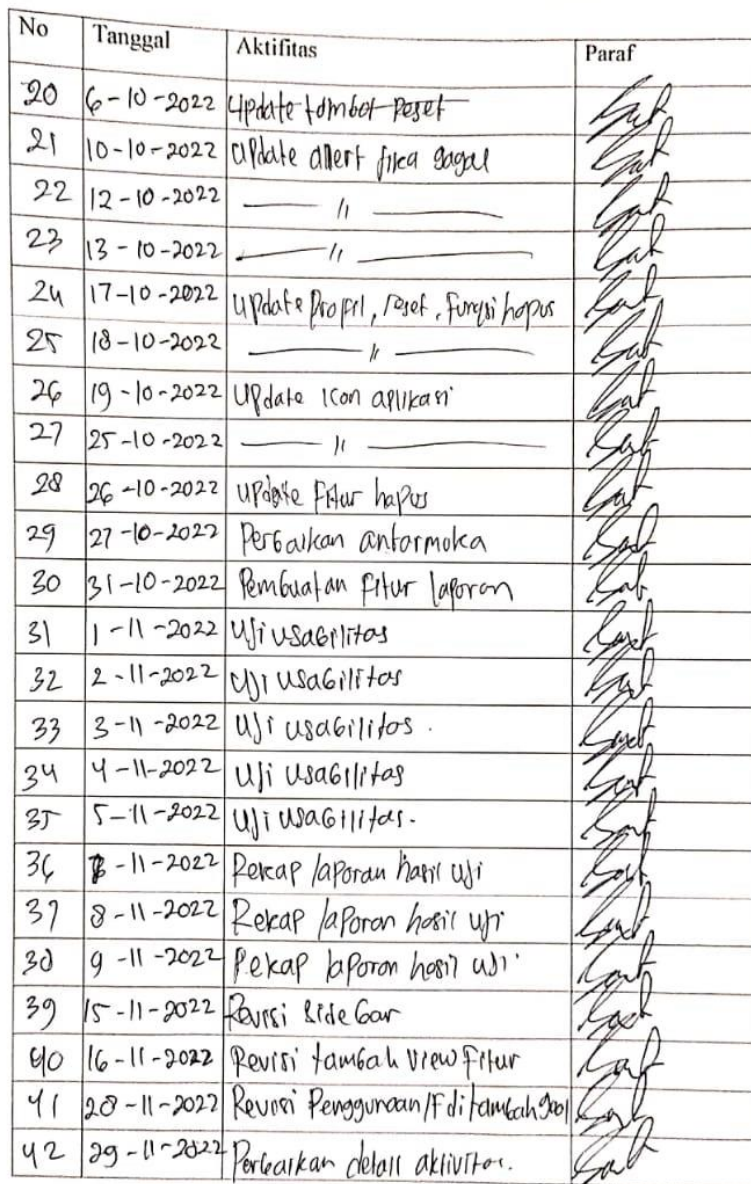 No Tanggal Aktifitas Paraf
20 6-10-2022 Update tombol reset
21 10-10-2022 Update allert jika gagal
22 12-10-2022 — 11 —
23 13-10-2022 — 11 —
24 17-10-2022 Update Profil, reset, fungsi hapus
25 18-10-2022 — 11 —
26 19-10-2022 Update icon aplikasi
27 25-10-2022 — 11 —
28 26-10-2022 Update Fitur hapus
29 27-10-2022 Perbaikan antarmuka
30 31-10-2022 Pembuatan Fitur laporan
31 1-11-2022 Uji usabilitas
32 2-11-2022 Uji usabilitas
33 3-11-2022 Uji usabilitas.
34 4-11-2022 Uji usabilitas
35 5-11-2022 Uji usabilitas.
36 -11-2022 Rekap laporan hasil uji
37 8-11-2022 Rekap laporan hasil uji
38 9-11-2022 Rekap laporan hasil uji
39 15-11-2022 Revisi Sidebar
40 16-11-2022 Revisi tambah view Fitur
41 28-11-2022 Revisi Penggunaan ditambah
42 29-11-2022 Perbaikan detail aktivitas.